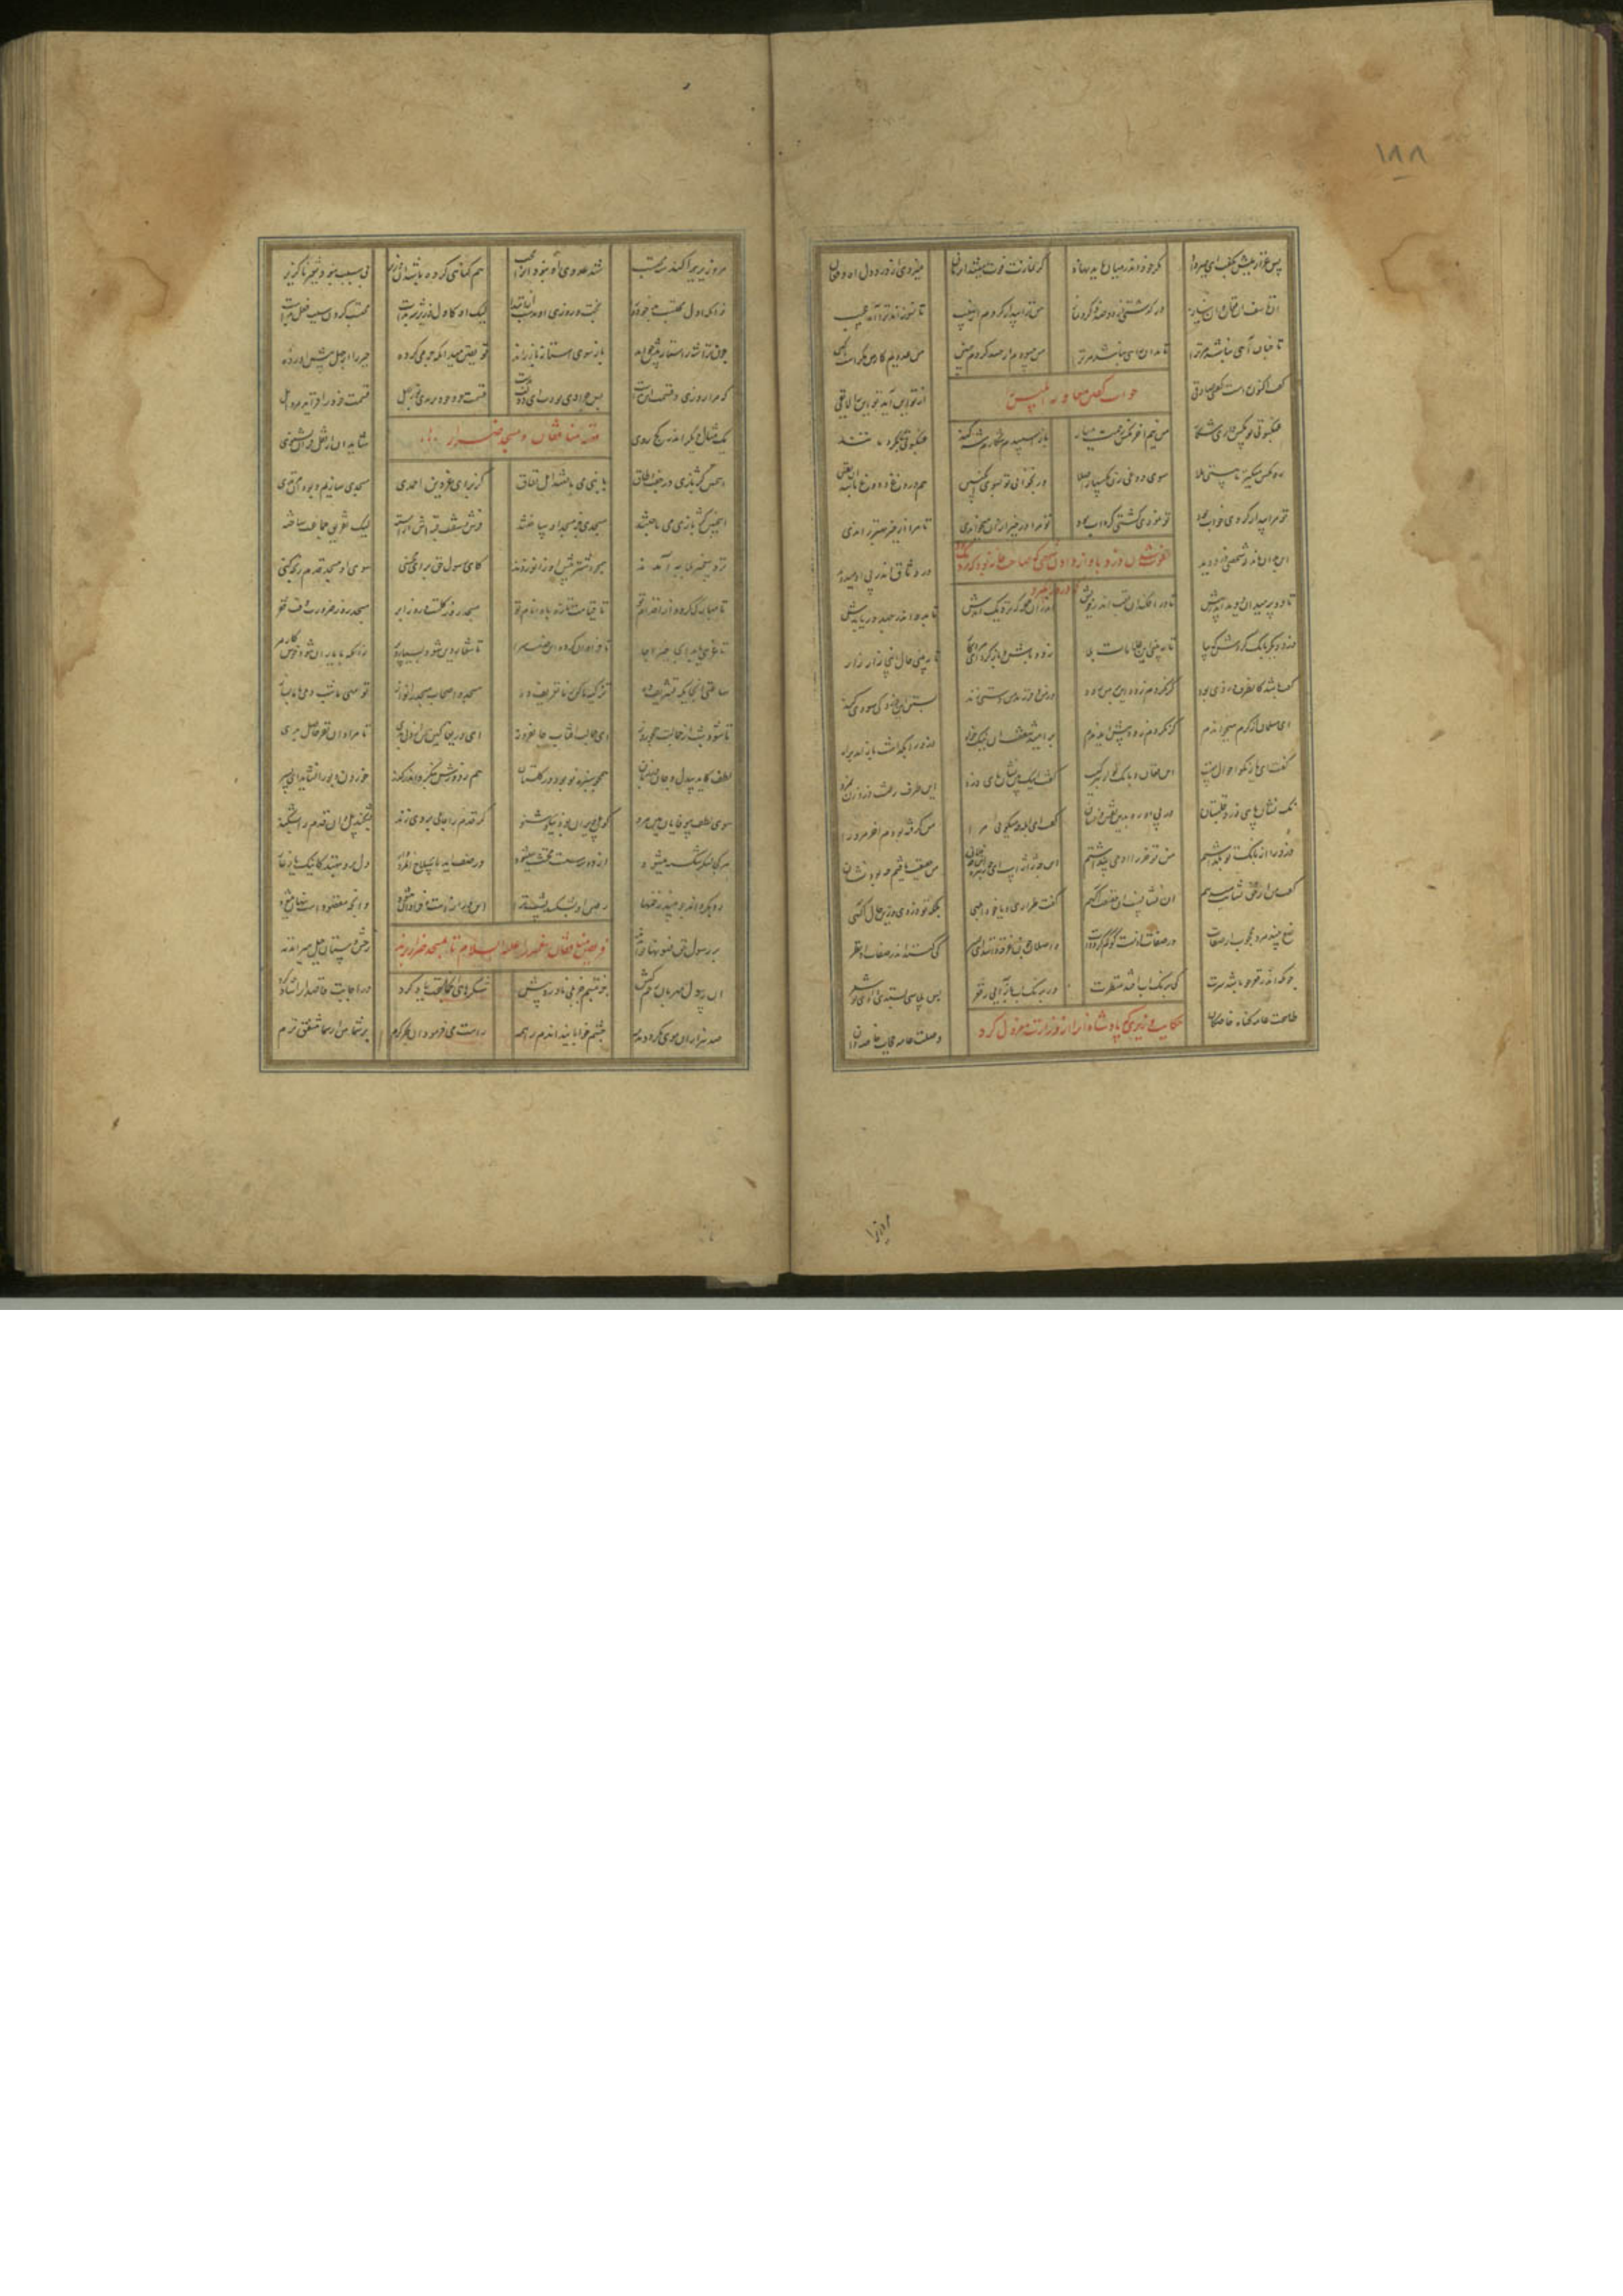 ۱۸۸
پس عزازیلش بگفت ای میر راد مکر خود اندر میان باید نهاد گر نمازت فوت میشد آن زمان میزدی از درد دل آه و فغان
آن تاسف آن فغان و آن نیاز در گذشتی از دو صد ذکر و نماز من ترا بیدار کردم از نهیب تا نسوزاند
تا چنان آهی نباشد مر ترا تا بدان راهی نباشد مر ترا من حسودم از حسد کردم چنین من عدوم کار من مکر است و کین
جواب گفتن معاویه ابلیس
گفت اکنون راست گفتی صادقی از تو این آید تو این را لایقی
عنکبوتی تو مگس داری شکار من نیم مگس زحمت میار باز اسپیدم شکارم شه کند عنکبوتی
رو مگس میگیر تا سوی دوغی زن مگسها را صلا ور بخوانی تو بسوی انگبین هم دروغ و دوغ باشد آن یقین
تو مرا بیدار کردی خواب بود تو نمودی کشتی گرداب بود تو مرا در خیر زان میخواندی تا مرا از خیر بهتر راندی
فوت شدن دزد باواز دادن شخصی صاحب خانه را که نزدیک بود دزد را گیرد
این بدان ماند که شخصی دزد دید در وثاق اندر پی او میدوید
تا دو سه میدان دوید اندر پیش تا در افکند آن تعب اندر خویش اندر آن حمله که نزدیک آمدش تا بدو اندر جهد در یابدش
دزد دیگر بانگ کردش که بیا تا ببینی این علامات بلا زود باش و باز گرد ای مرد کار تا ببینی حال اینجا زار زار
گفت باشد کان طرف دزدی بود گر نگردم زود این بر من رود در زن و فرزند من دستی زند بستن این دزد کی سودم کند
این مسلمان از کرم میخواندم گر نگردم زود پیش آید ندم بر امید شفقت آن نیکخواه دزد را بگذاشت باز آمد براه
گفت ای یار نکو احوال چیست این فغان و بانگ تو از دست کیست گفت اینک بین نشان پای دزد این طرف رفت دزد زن بمزد
نک نشان پای دزد قلتبان در پی او رو بدین نقش و نشان گفت ای ابله چه میگویی مرا من گرفته بودم آخر مر ورا
دزد را از بانگ تو بگذاشتم من تو خر را آدمی پنداشتم این چه ژاژست و چه هرزه ای فلان من حقیقت یافتم چه بود نشان
گفت من از حق نشانت میدهم این نشانست از حقیقت آگهم گفت طراری تو یا خود ابلهی بلکه تو دزدی و زین حال آگهی
صنع بیند مرد محجوب از صفات در صفات آنست کو گم کرد ذات واصلان چون غرق ذاتند ای پسر کی کنند اندر صفات او نظر
چونکه اندر قعر جو باشد سرت کی برنگ آب افتد منظرت ور برنگ آب باز آیی ز قعر پس پلاسی بستدی دادی تو شعر
طاعت عامه گناه خاصگان وصلت عامه حجاب خاص دان
حکایت وزیری که پادشاه او را از وزارت معزول کرد
مر وزیری را کند شه محتسب شه عدوی او بود نبود محب هم گناهی کرده باشد آن وزیر بی سبب نبود تغیر ناگزیر
آنکه ز اول محتسب بد خود ورا بخت و روزی آن بدست از ابتدا لیک آن کاول وزیر شه بدست محتسب کردن سبب فعل بدست
چون ترا شه ز آستانه پیش خواند باز سوی آستانه باز راند تو یقین میدان که جرمی کرده جبر را از جهل پیش آورده
که مرا روزی و قسمت این بدست پس چرا دی بودت آن دولت بدست قسمت خود خود بریدی تو ز جهل قسمت خود را فزاید مرد اهل
قصه منافقان و مسجد ضرار
یک مثال دیگر اندر کژ روی شاید ار از نقل قرآن بشنوی
این چنین کژ بازی در جفت و طاق با نبی می باختند اهل نفاق کز برای عز دین احمدی مسجدی سازیم و بود آن مرتدی
این چنین کژ بازی می باختند مسجدی جز مسجد او ساختند فرش و سقف و قبه اش آراسته لیک تفریق جماعت خواسته
نزد پیغمبر بلابه آمدند همچو اشتر پیش او زانو زدند کای رسول حق برای محسنی سوی آن مسجد قدم رنجه کنی
تا مبارک گردد از اقدام تو تا قیامت تازه بادا نام تو مسجد روز گلست و روز ابر مسجد روز ضرورت وقت فقر
تا غریبی یابد آنجا خیر و جا تا فراوان گردد این خدمت سرا تا شعار دین شود بسیار و پر زانکه با یاران شود خوش کار مر
ساعتی آنجایگه تشریف ده تزکیه ما کن ز ما تعریف ده مسجد و اصحاب مسجد را نواز تو مهی ما شب دمی با ما بساز
تا شود شب از جمالت همچو روز ای جمالت آفتاب جان فروز ای دریغا کان سخن از دل بدی تا مراد آن نفر حاصل شدی
لطف کاید بی دل و جان در زبان همچو سبزه تون بود ای دوستان هم ز دورش بنگر و اندر گذر خوردن و بو را نشاید ای پسر
سوی لطف بی وفایان هین مرو کان پل ویران بود نیکو شنو گر قدم را جاهلی بر وی زند بشکند پل و آن قدم را بشکند
هر کجا لشکر شکسته میشود از دو سه سست مخنث میبود در صف آید با سلاح او مردوار دل برو بنهند کاینک یار غار
رو بگرداند چو بیند زخمها رفتن او بشکند پشت ترا این درازست و فراوان میشود وآنچه مقصودست پنهان میشود
فریفتن منافقان پیغمبر را علیه السلام تا بمسجد ضرار برند
بر رسول حق فسونها خواندند رخش دستان و حیل میراندند
آن رسول مهربان رحم کیش جز تبسم جز بلی ناورد پیش شکرهای آن جماعت یاد کرد در اجابت قاصدان را شاد کرد
صد هزاران موی مکر و دمدمه چشم خوابانید آن دم زان همه راست میفرمود آن بحر کرم بر شما من از شما مشفق ترم